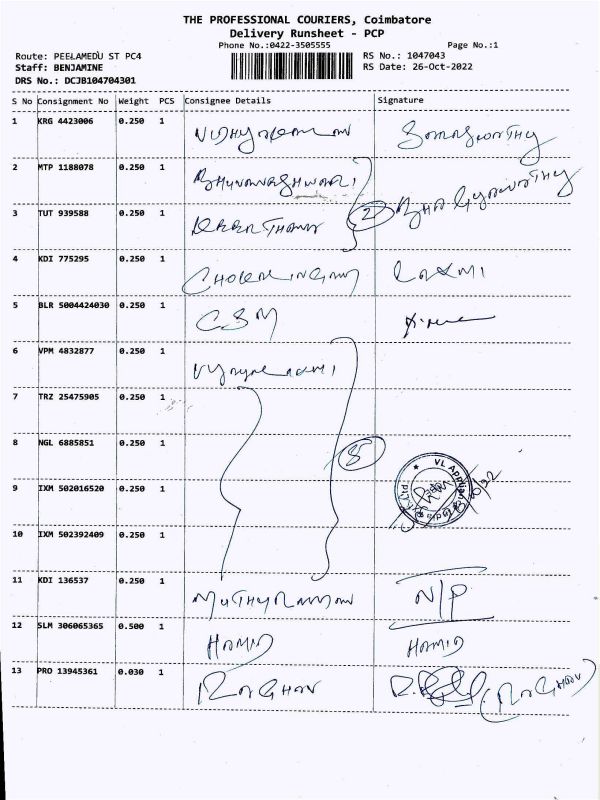 THE PROFESSIONAL COURIERS, Coimbatore
Delivery Runsheet - PCP
Phone No.:0422-3505555 Page No.:1
Route: PEELAMEDU ST PC4 RS No.: 1047043
Staff: BENJAMINE RS Date: 26-Oct-2022
DRS No.: DCJB104704301
S No Consignment No Weight PCS Consignee Details Signature
1 KRG 4423006 0.250 1
2 MTP 1188078 0.250 1 BHUVANASHWARI
3 TUT 939588 0.250 1 2
4 KDI 775295 0.250 1 CHOKALINGAM LAXMI
5 BLR 5004424030 0.250 1 CSM
6 VPM 4832877 0.250 1
7 TRZ 25475905 0.250 1
8 NGL 6885851 0.250 1 5
VL Appliances
9 IXM 502016520 0.250 1
10 IXM 502392409 0.250 1
11 KDI 136537 0.250 1 MUTHURAMAN N/P
12 SLM 306065365 0.500 1 HAMID HAMID
13 PRO 13945361 0.030 1 RAGHAV (RAGHAV)